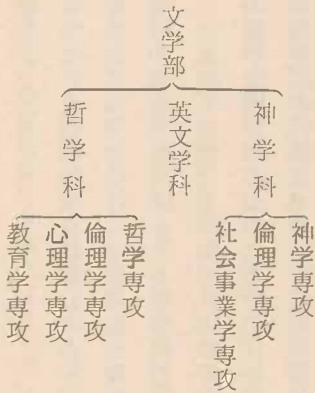 文学部
神学科
英文学科
哲学科
神学専攻
倫理学専攻
社会事業学専攻
哲学専攻
倫理学専攻
心理学専攻
教育学専攻